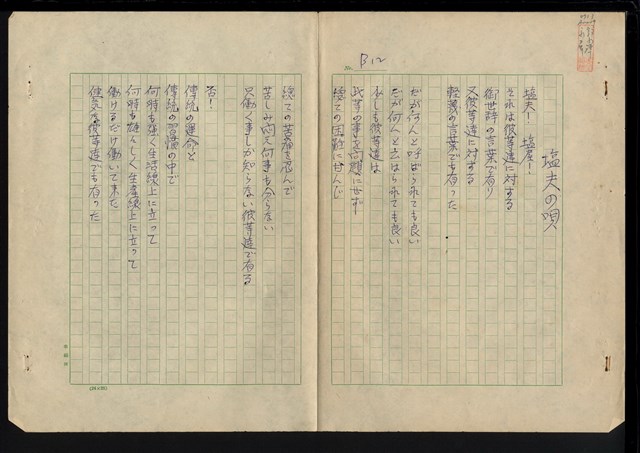 B12
塩夫の唄
塩夫! 塩屋!
それは彼等達に対する
御世辞の言葉で有り
又彼等達に対する
軽蔑の言葉でも有った
だが何んと呼ばられても良い
だが何んと云はられても良い
少しも彼等達は
此等の事を問題にせず
捨ての困難に甘んじ
捨ての苦痛を忍んで
苦しみ悶え何事も分らない
只働く事しか知らない彼等達で有る
否!
傳統の運命と
傳統の習慣の中で
何時も強く生活線上に立って
何時も雄々しく生産線上に立って
働けるだけ働いて来た
健気な彼等達でも有った